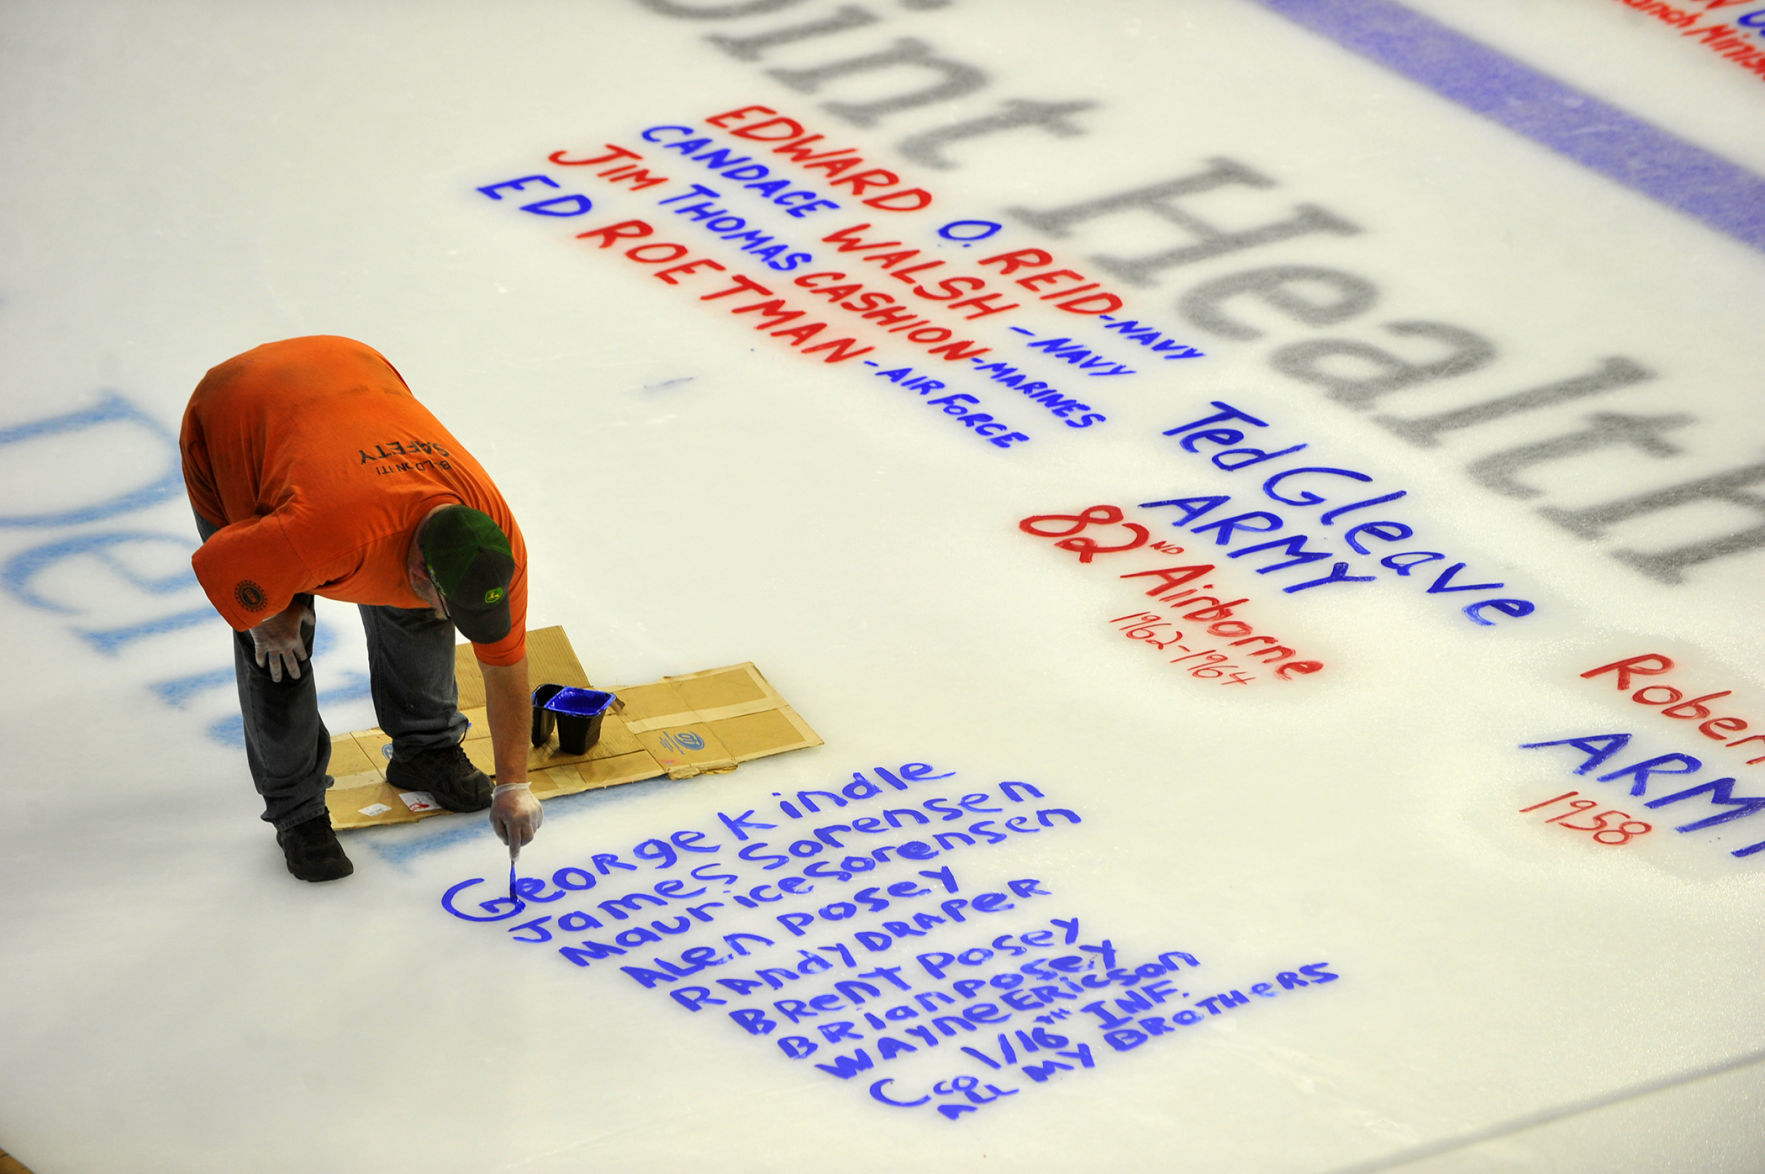 oint Health
EDWARD O. REID-NAVY
CANDACE WALSH - NAVY
JIM THOMAS CASHION-MARINES
ED ROETMAN - AIR FORCE
Ted Gleave
ARMY
82ND Airborne
1962-1964
Rober
ARMY
1958
SAFETY
George Kindle
James Sorensen
Maurice Sorensen
ALen Posey
RAndy DRAPER
BRent Posey
BRIan Posey
WAyne ERicson
C co 1/16TH INF.
ALL MY BROTHeRS